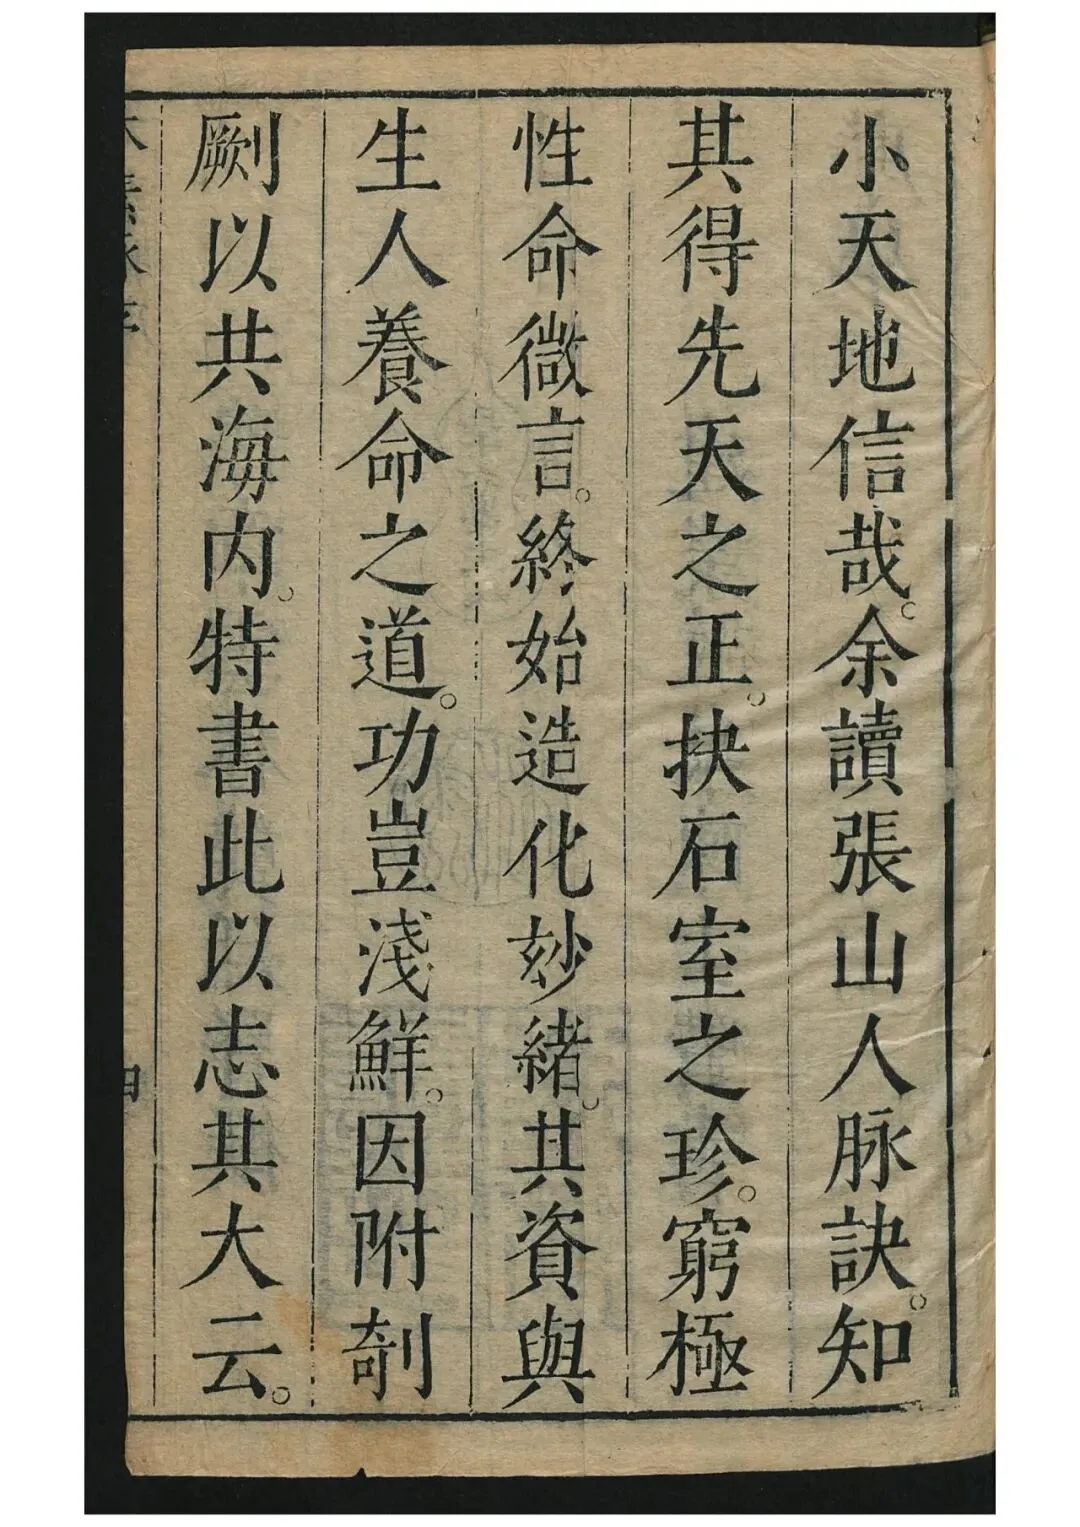 小天地信哉。余讀張山人脉訣。知
其得先天之正。抉石室之珍。窮極
性命微言。終始造化妙緒。其資與
生人養命之道。功豈淺鮮。因附剞
劂以共海内。特書此以志其大云。